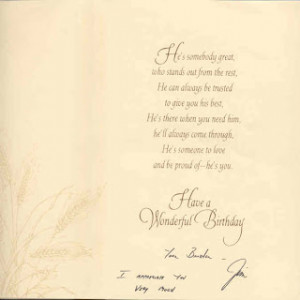 He's somebody great,
who stands out from the rest,
He can always be trusted
to give you his best,
He's there when you need him,
he'll always come through,
He's someone to love
and be proud of—he's you.
Have a
Wonderful Birthday
I
You
Very Much